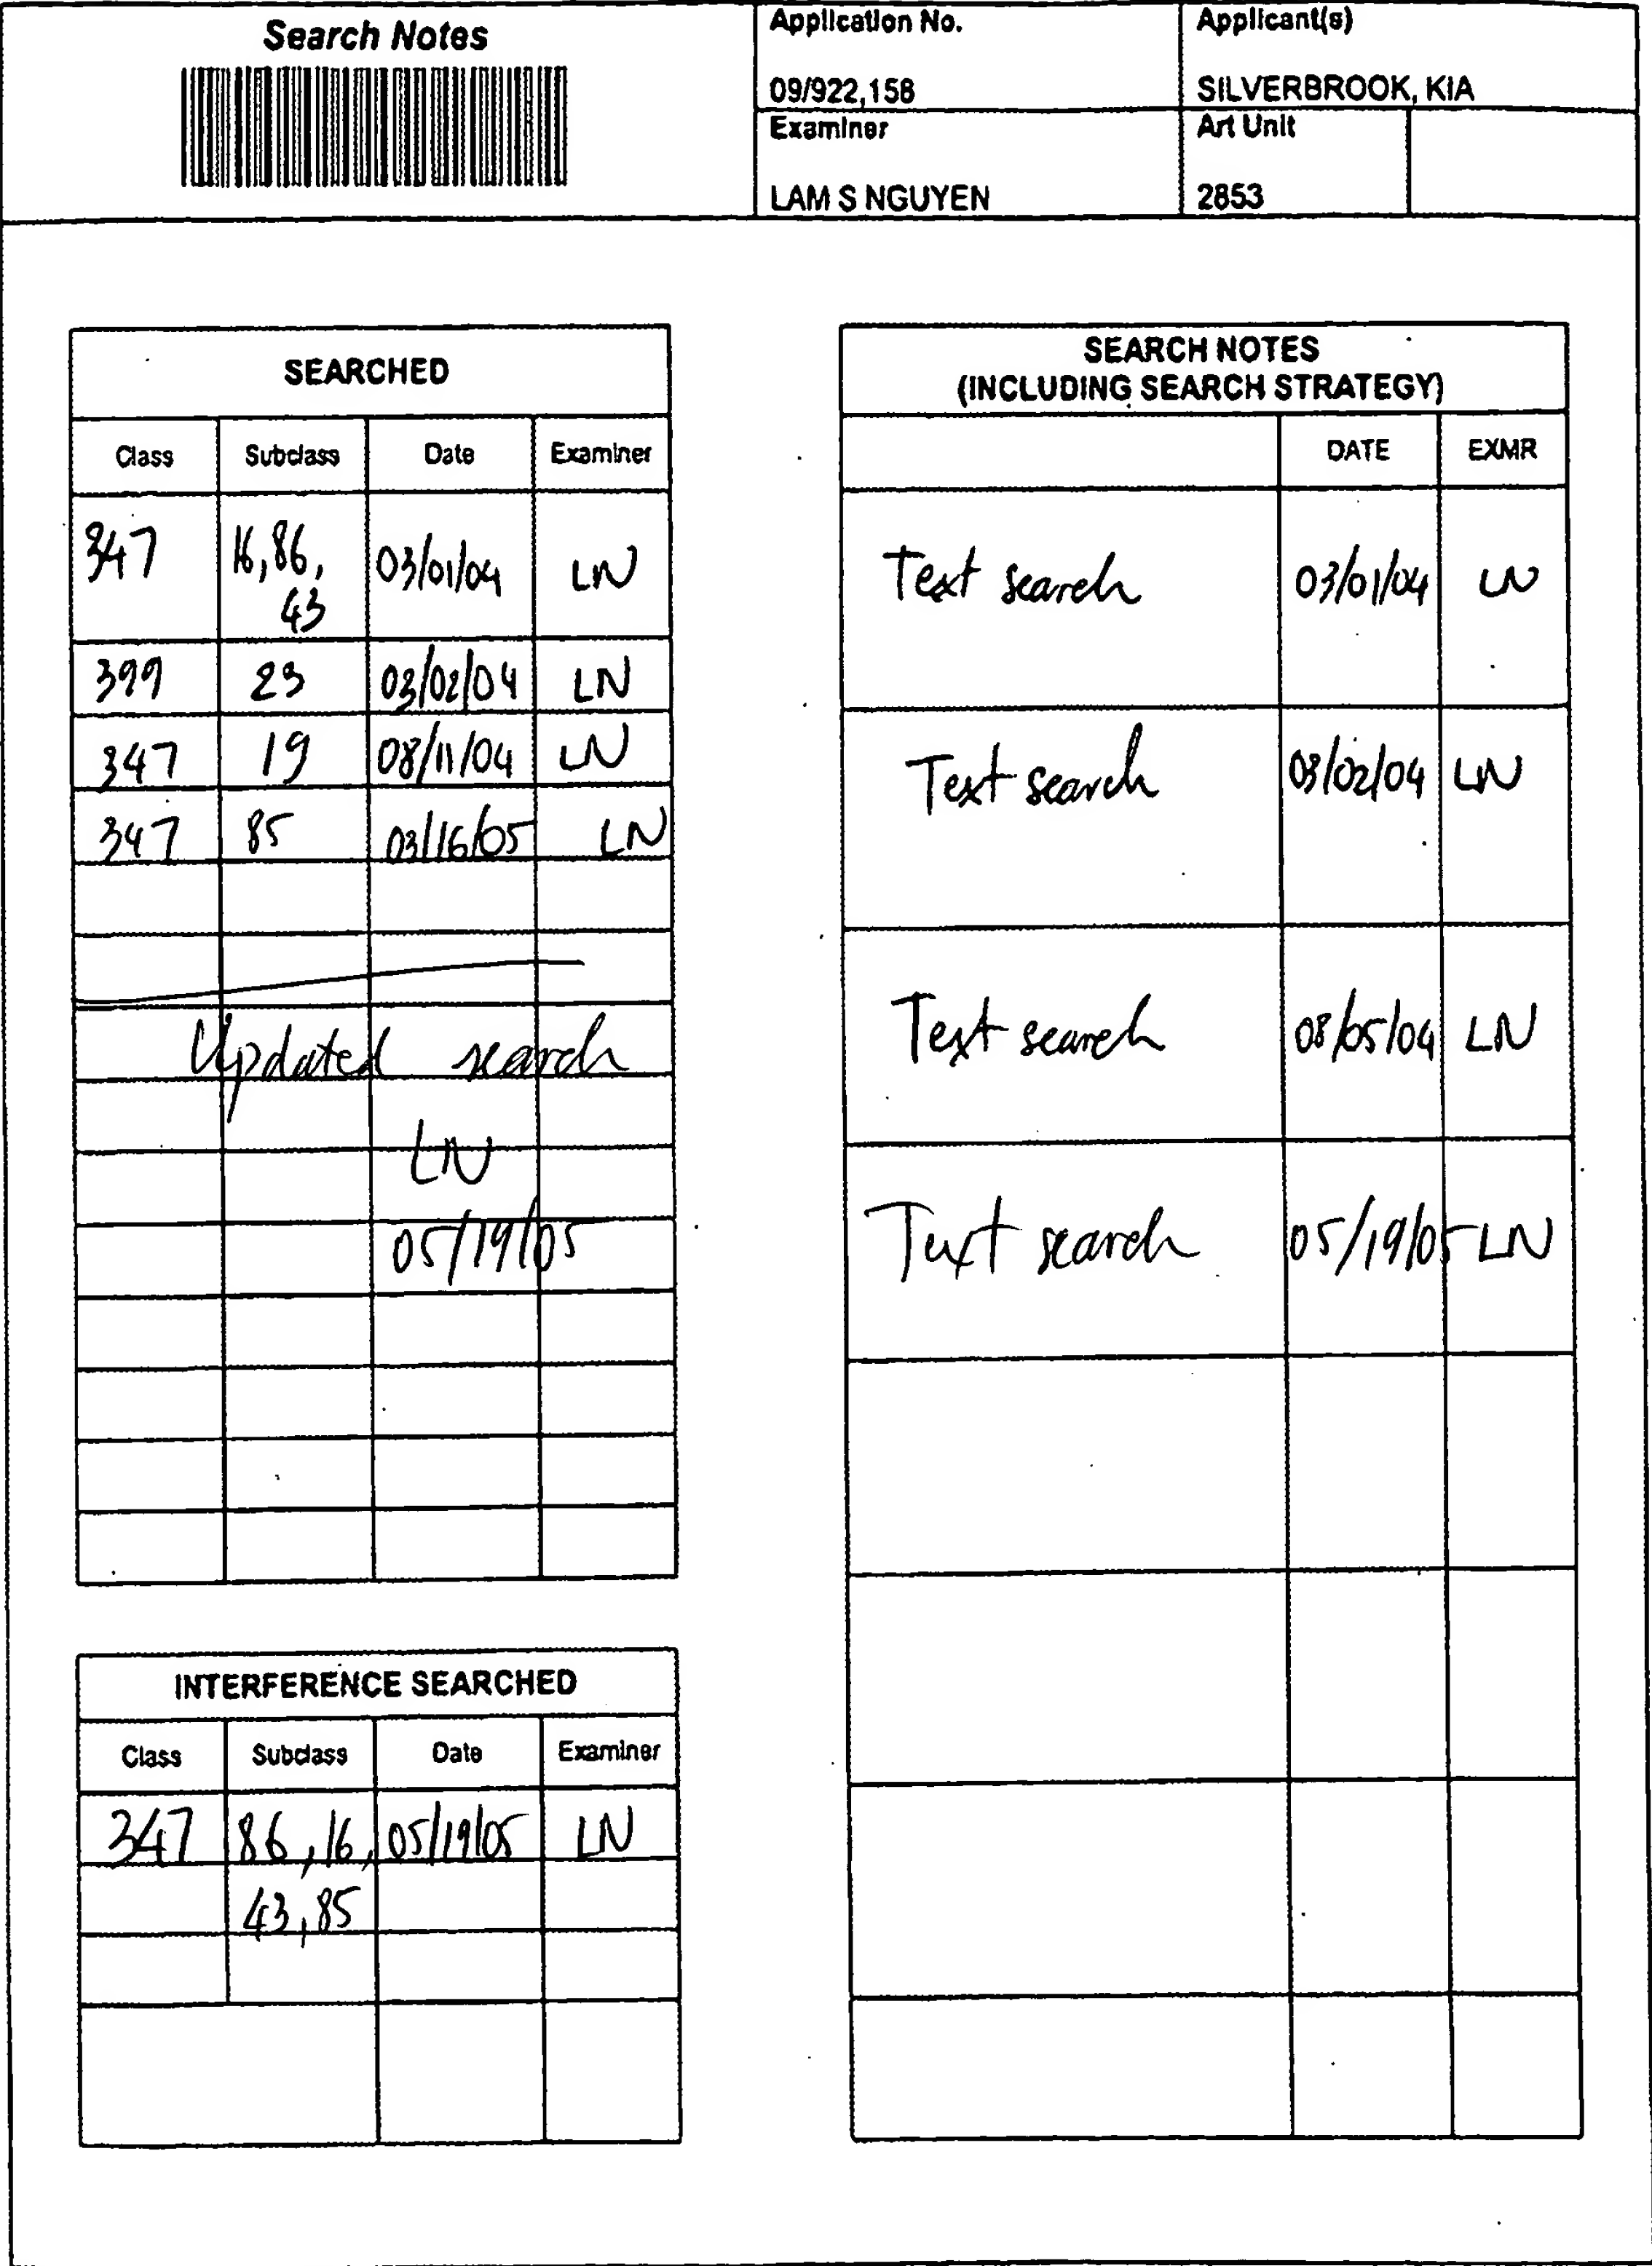 Search Notes
Application No.
09/922,158
Applicant(s)
SILVERBROOK, KIA
Examiner
LAM S NGUYEN
Art Unit
2853
SEARCHED
Class Subclass Date Examiner
347 16,86, 03/01/04 LN
43
399 23 03/02/04 LN
347 19 08/11/04 LN
347 85 03/16/05 LN
Updated search
LN
05/19/05
INTERFERENCE SEARCHED
Class Subclass Date Examiner
347 86,16, 05/19/05 LN
43,85
SEARCH NOTES
(INCLUDING SEARCH STRATEGY)
DATE EXMR
Text search 03/01/04 LN
Text search 03/02/04 LN
Text search 08/05/04 LN
Text search 05/19/05 LN